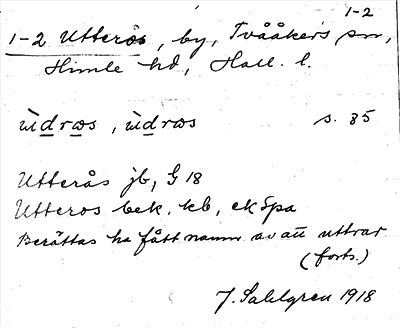 1-2
1-2 Utterås, by, Tvååkers sn,
Himle hd, Hall. l.
ùdræs, ùdræs s. 85
Utterås jb, G 18
Utteros bek. kb, ek Spa
Berättas ha fått namn av att uttrar
(forts.)
J. Sahlgren 1918